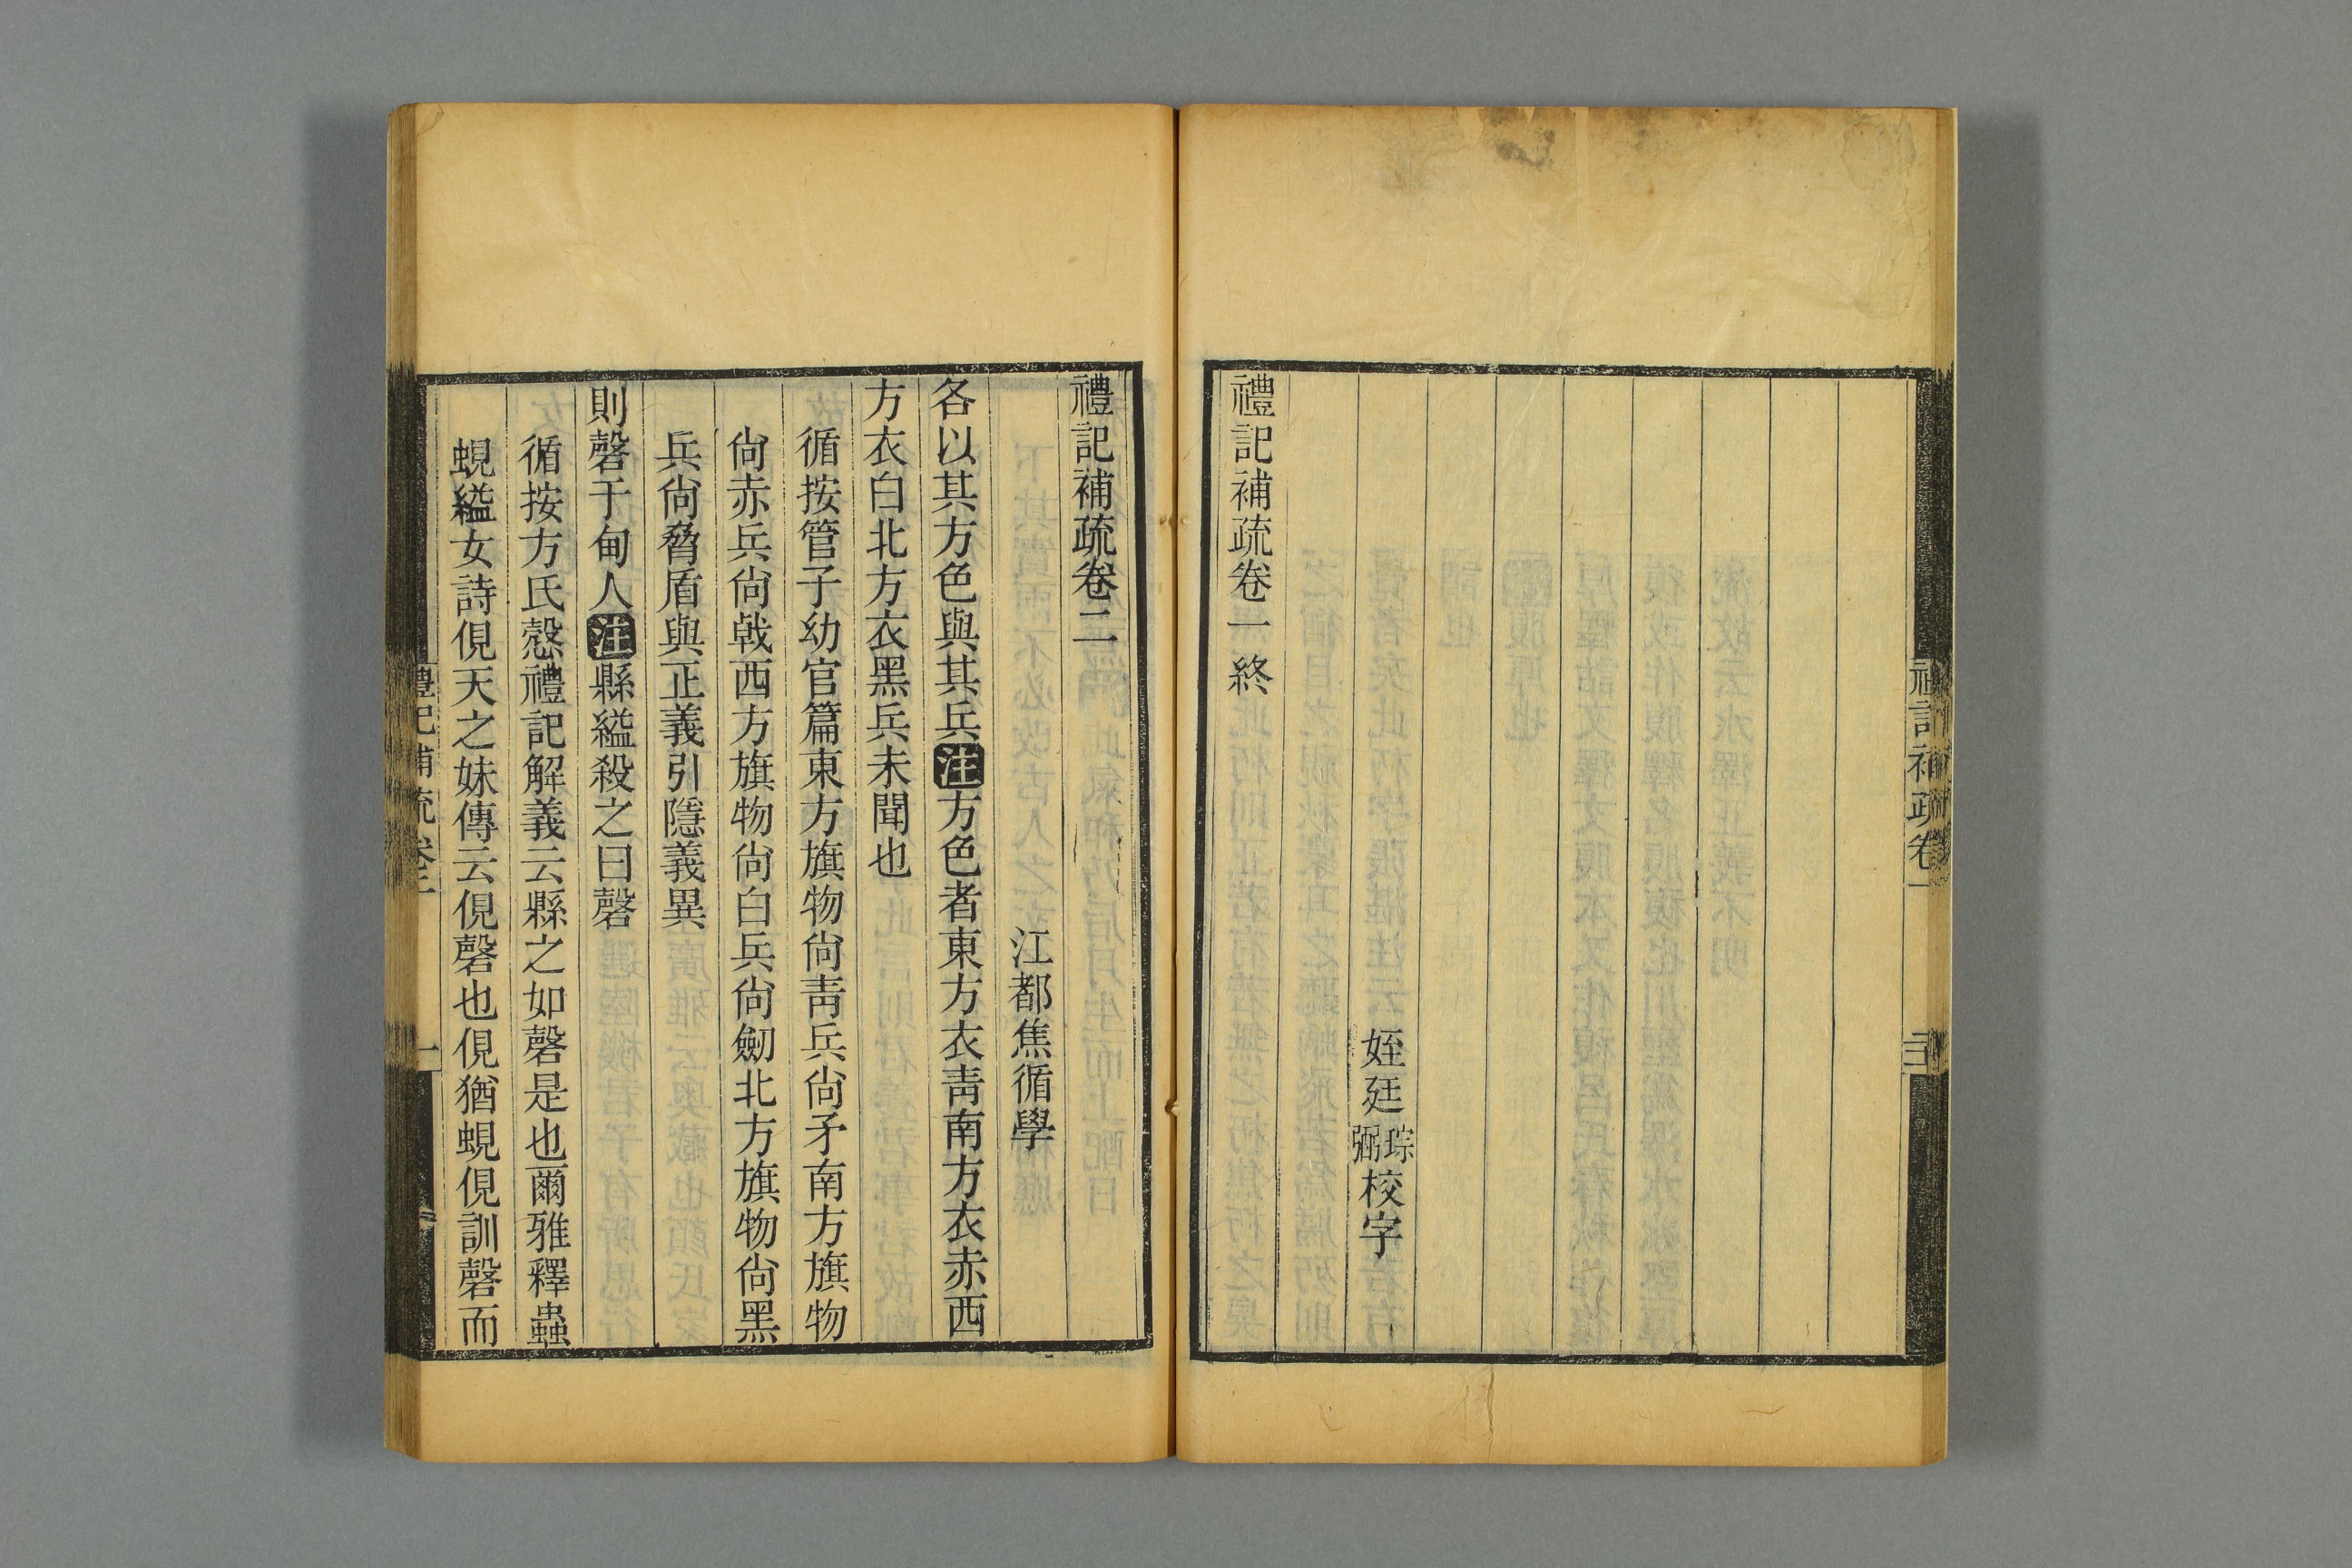 禮記補疏卷一
姪廷琮弼校字
禮記補疏卷一終
禮記補疏卷二
江都焦循學
各以其方色與其兵注方色者東方衣靑南方衣赤西
方衣白北方衣黑兵未聞也
循按管子幼官篇東方旗物尙靑兵尙矛南方旗物
尙赤兵尙戟西方旗物尙白兵尙劒北方旗物尙黑
兵尙脅盾與正義引隱義異
則磬于甸人注縣縊殺之曰磬
循按方氏慤禮記解義云縣之如磬是也爾雅釋蟲
蜆縊女詩俔天之妹傳云俔磬也俔猶蜆俔訓磬而
禮記補疏卷二
一